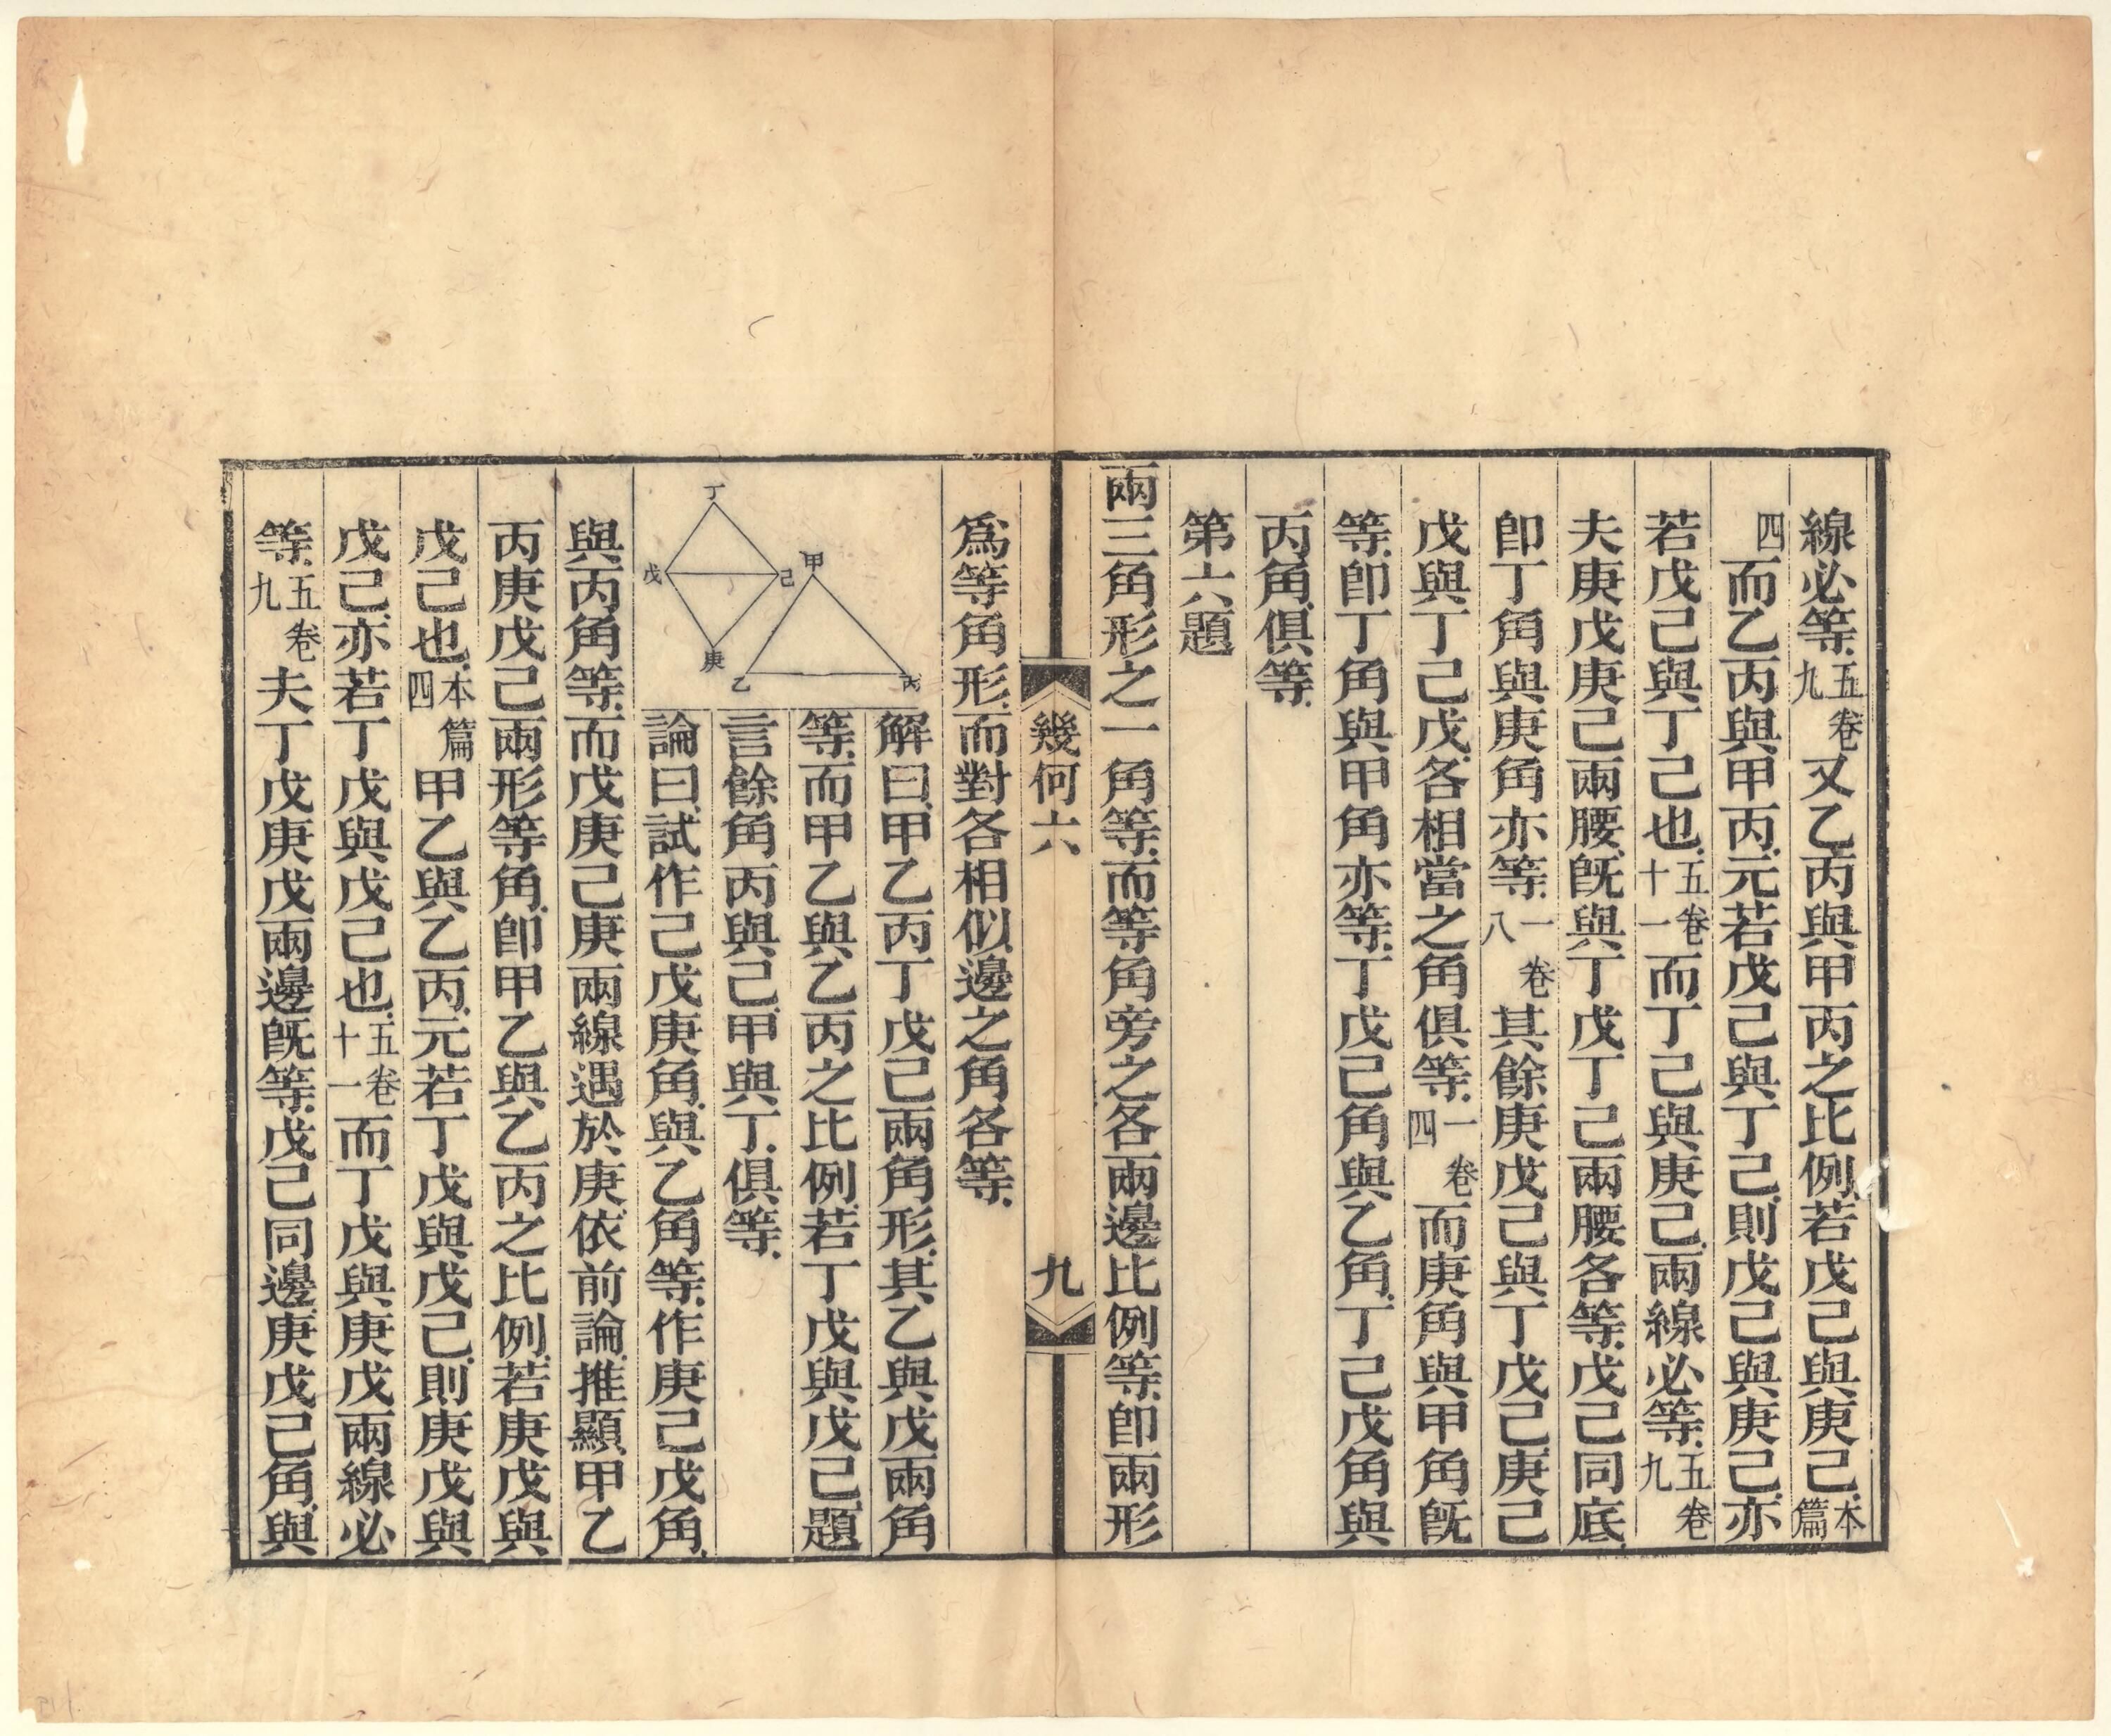 線必等五卷九又乙丙與甲丙之比例若戊己與庚己本篇
四而乙丙與甲丙元若戊己與丁己則戊己與庚己亦
若戊己與丁己也五卷十一而丁己與庚己兩線必等五卷九
夫庚戊庚己兩腰旣與丁戊丁己兩腰各等戊己同底
卽丁角與庚角亦等一卷八其餘庚戊己與丁戊己庚己
戊與丁己戊各相當之角俱等一卷四而庚角與甲角旣
等卽丁角與甲角亦等丁戊己角與乙角丁己戊角與
丙角俱等
第六題
兩三角形之一角等而等角旁之各兩邊比例等卽兩形
幾何六 九
爲等角形而對各相似邊之角各等
丁
戊
己
庚
甲
乙
丙
解曰甲乙丙丁戊己兩角形其乙與戊兩角
等而甲乙與乙丙之比例若丁戊與戊己題
言餘角丙與己甲與丁俱等
論曰試作己戊庚角與乙角等作庚己戊角
與丙角等而戊庚己庚兩線遇於庚依前論推顯甲乙
丙庚戊己兩形等角卽甲乙與乙丙之比例若庚戊與
戊己也本篇四甲乙與乙丙元若丁戊與戊己則庚戊與
戊己亦若丁戊與戊己也五卷十一而丁戊與庚戊兩線必
等五卷九夫丁戊庚戊兩邊旣等戊己同邊庚戊己角與